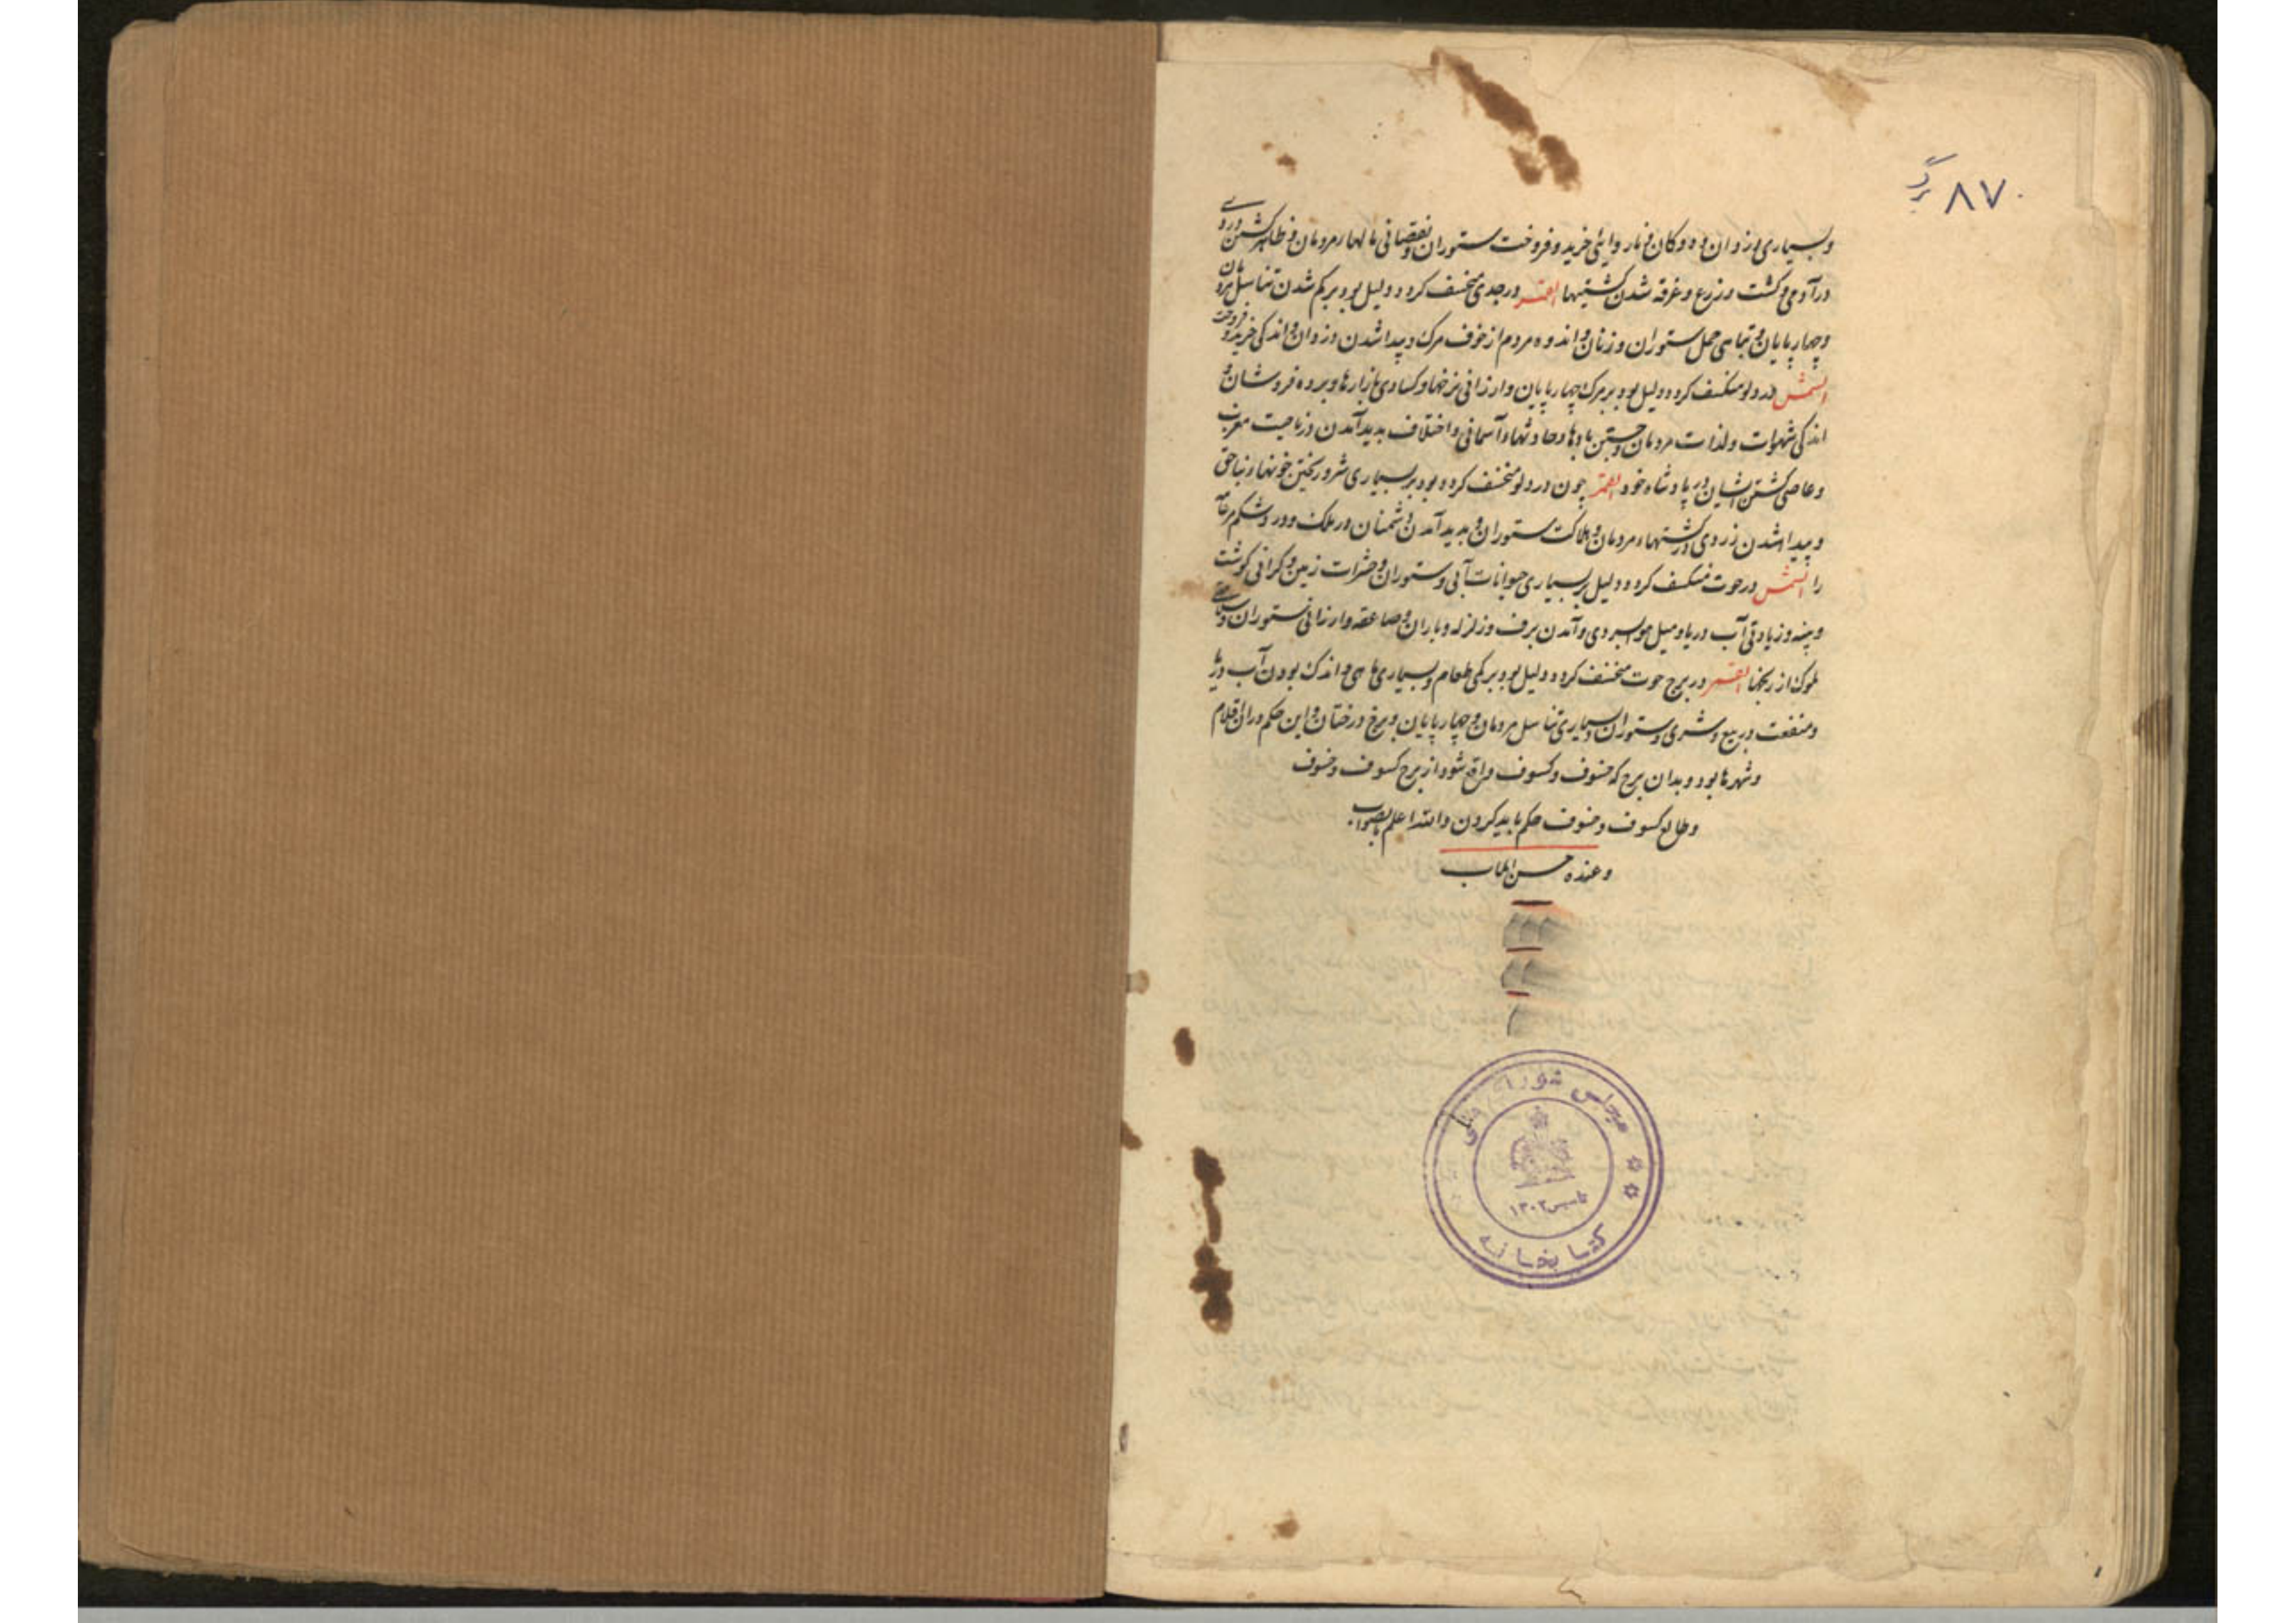 ۸۷ برگ
وبسیاری دزدان و دوکان و ناروایی خرید و فروخت ستوران و نقصانی مالهاء مردمان و ظاهر گشتن
در آدمی و کشت و زرع و غرقه شدن کشتیها القمر در جدی منخسف کردد دلیل بود بر کم شدن تناسل مردمان
وچهارپایان و تباهی حمل ستوران و زنان و اندوه مردم از خوف مرک و پیدا شدن دزدان و اندکی خرید و فروخت
الشمس در دلو منکسف کردد دلیل بود بر مرک چهارپایان و ارزانی نرخها و کسادی بازارها و برده فروشان و
اندکی شهوات و لذات مردمان و جستن بادها و حادثهاء آسمانی و اختلاف بدید آمدن در ناحیت مغرب
و عاصی کشتن ایشان در پادشاه خود القمر چون در دلو منخسف کردد بود بر بسیاری شر و ریختن خونها و بناحق
و پیدا شدن زردی در کشتهاء مردمان و هلاکت ستوران و بدید آمدن دشمنان در ملک و درد شکم
را الشمس در حوت منکسف کردد دلیل بر بسیاری حیوانات آبی و ستوران و حشرات زمین و کرانی کوشت
و پنبه و زیادتی آب دریا و میل هوا بسردی و آمدن برف و زلزله و باران و صاعقه و ارزانی ستوران و
ملوک از رنجها القمر در برج حوت منخسف کردد دلیل بود بر کمی طعام و بسیاری ماهی و اندک بودن آب
و منفعت در بیع و شری و ستوران و بسیاری تناسل مردمان و چهارپایان و درختان و این حکم در آن اقلام
و شهرها بود و بدان برج که خسوف و کسوف واقع شود از برج کسوف و خسوف
و طالع کسوف و خسوف حکم باید کردن والله اعلم بالصواب
و عنده حسن الماب
مجلس شورای ملی
تاسیس ۱۳۰۲
کتابخانه